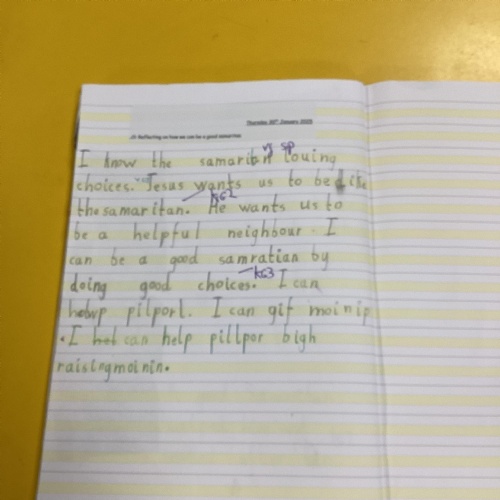 Thursday 30th January 2025
LO: Reflecting on how we can be a good samaritan
I know the samaritan louing
sp
choices. Jesus wants us to be like
the samaritan. He wants us to
be a helpful neighbour. I
can be a good samratian by
doing good choices. I can
helwp pilporl. I can gif moinip
. I hel can help pillpor bigh
raisingmoinin.